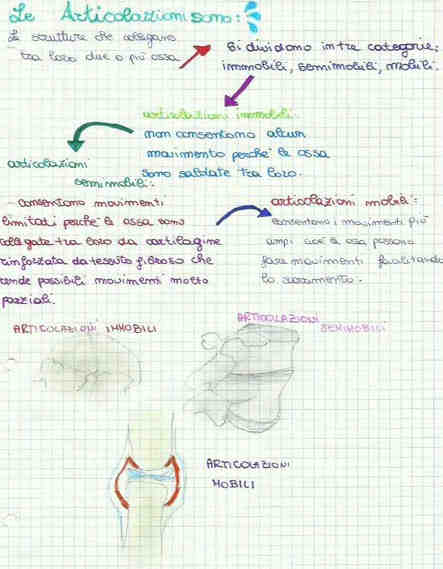 Le Articolazioni sono:
Le strutture che collegano
tra loro due o più ossa
Si dividono in tre categorie:
immobili, semimobili, mobili.
articolazioni immobili:
non consentono alcun
movimento perché le ossa
sono saldate tra loro.
articolazioni
semimobili:
- consentono movimenti
limitati perché le ossa sono
collegate tra loro da cartilagine
rinforzata da tessuto fibroso che
rende possibili movimenti molto
parziali.
articolazioni mobili:
consentono i movimenti più
ampi cioè le ossa possono
fare movimenti facilitando
lo scorrimento.
ARTICOLAZIONI IMMOBILI
ARTICOLAZIONI
SEMIMOBILI
ARTICOLAZIONI
MOBILI